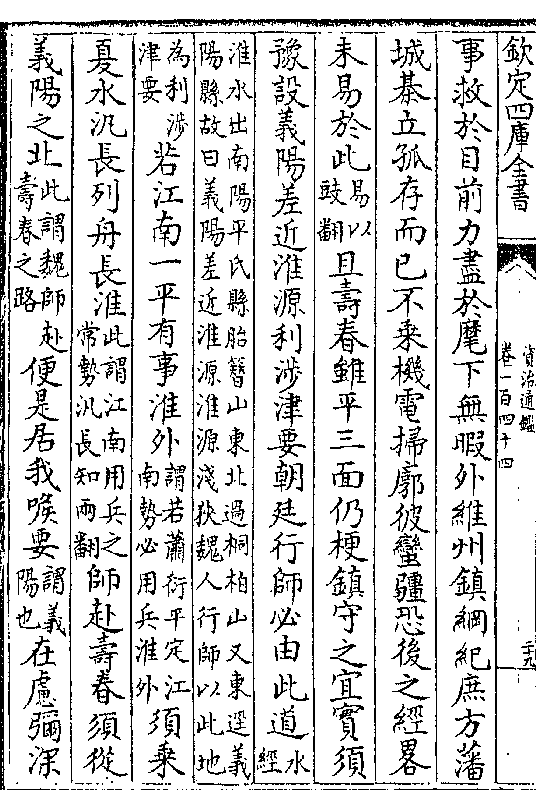 欽定四庫全書
資治通鑑
卷一百四十四
二十九
事救於目前力盡於麾下無暇外維州鎮綱紀庶方藩
城棊立孤存而已不乗機電掃廓彼蠻疆恐後之經畧
未易於此易以
豉翻且壽春雖平三面仍梗鎮守之宜實須
豫設義陽差近淮源利渉津要朝廷行師必由此道水
經
淮水出南陽平氏縣胎簪山東北過桐柏山又東逕義
陽縣故曰義陽差近淮源淮源淺狹魏人行師以此地
為利渉
津要若江南一平有事淮外謂若蕭衍平定江
南勢必用兵淮外須乗
夏水汎長列舟長淮此謂江南用兵之
常勢汎長知兩翻師赴壽春須從
義陽之北此謂魏師赴
壽春之路便是居我喉要謂義
陽也在慮彌深